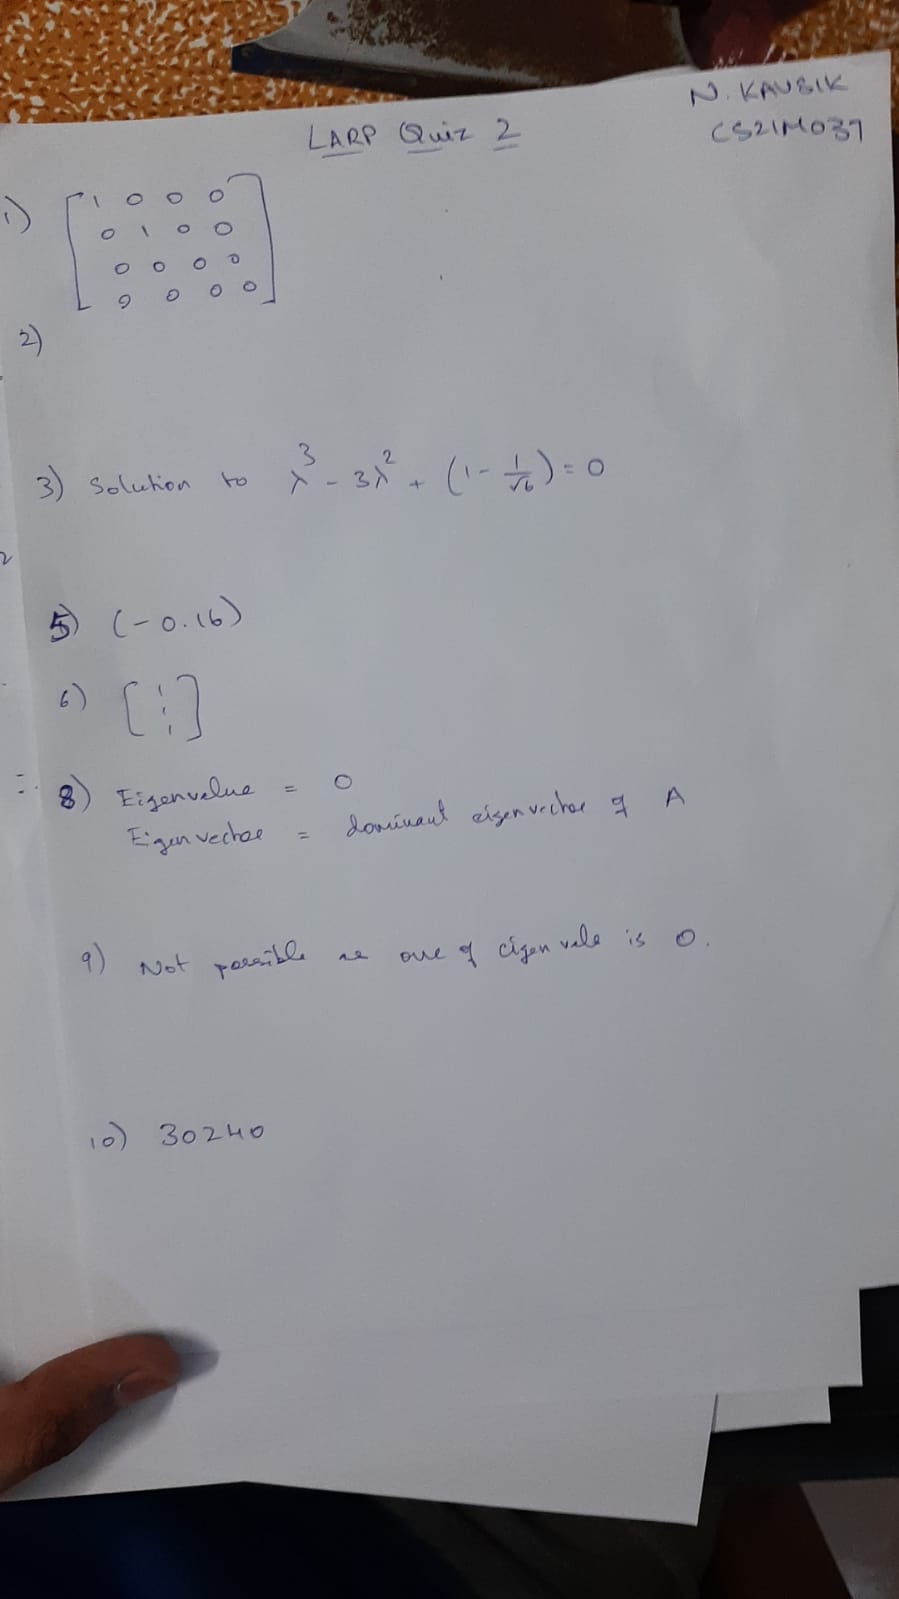 N. KAUSIK
LARP Quiz 2
CS21M037
1) [1 0 0 0
0 1 0 0
0 0 0 0
0 0 0 0]
2)
3) Solution to λ³ - 3λ² + (1 - 1/√6) = 0
5) (-0.16)
6) [1 1 1]
8) Eigenvalue = 0
Eigenvector = dominant eigenvector of A
9) Not possible as one of eigen vale is 0.
10) 30240